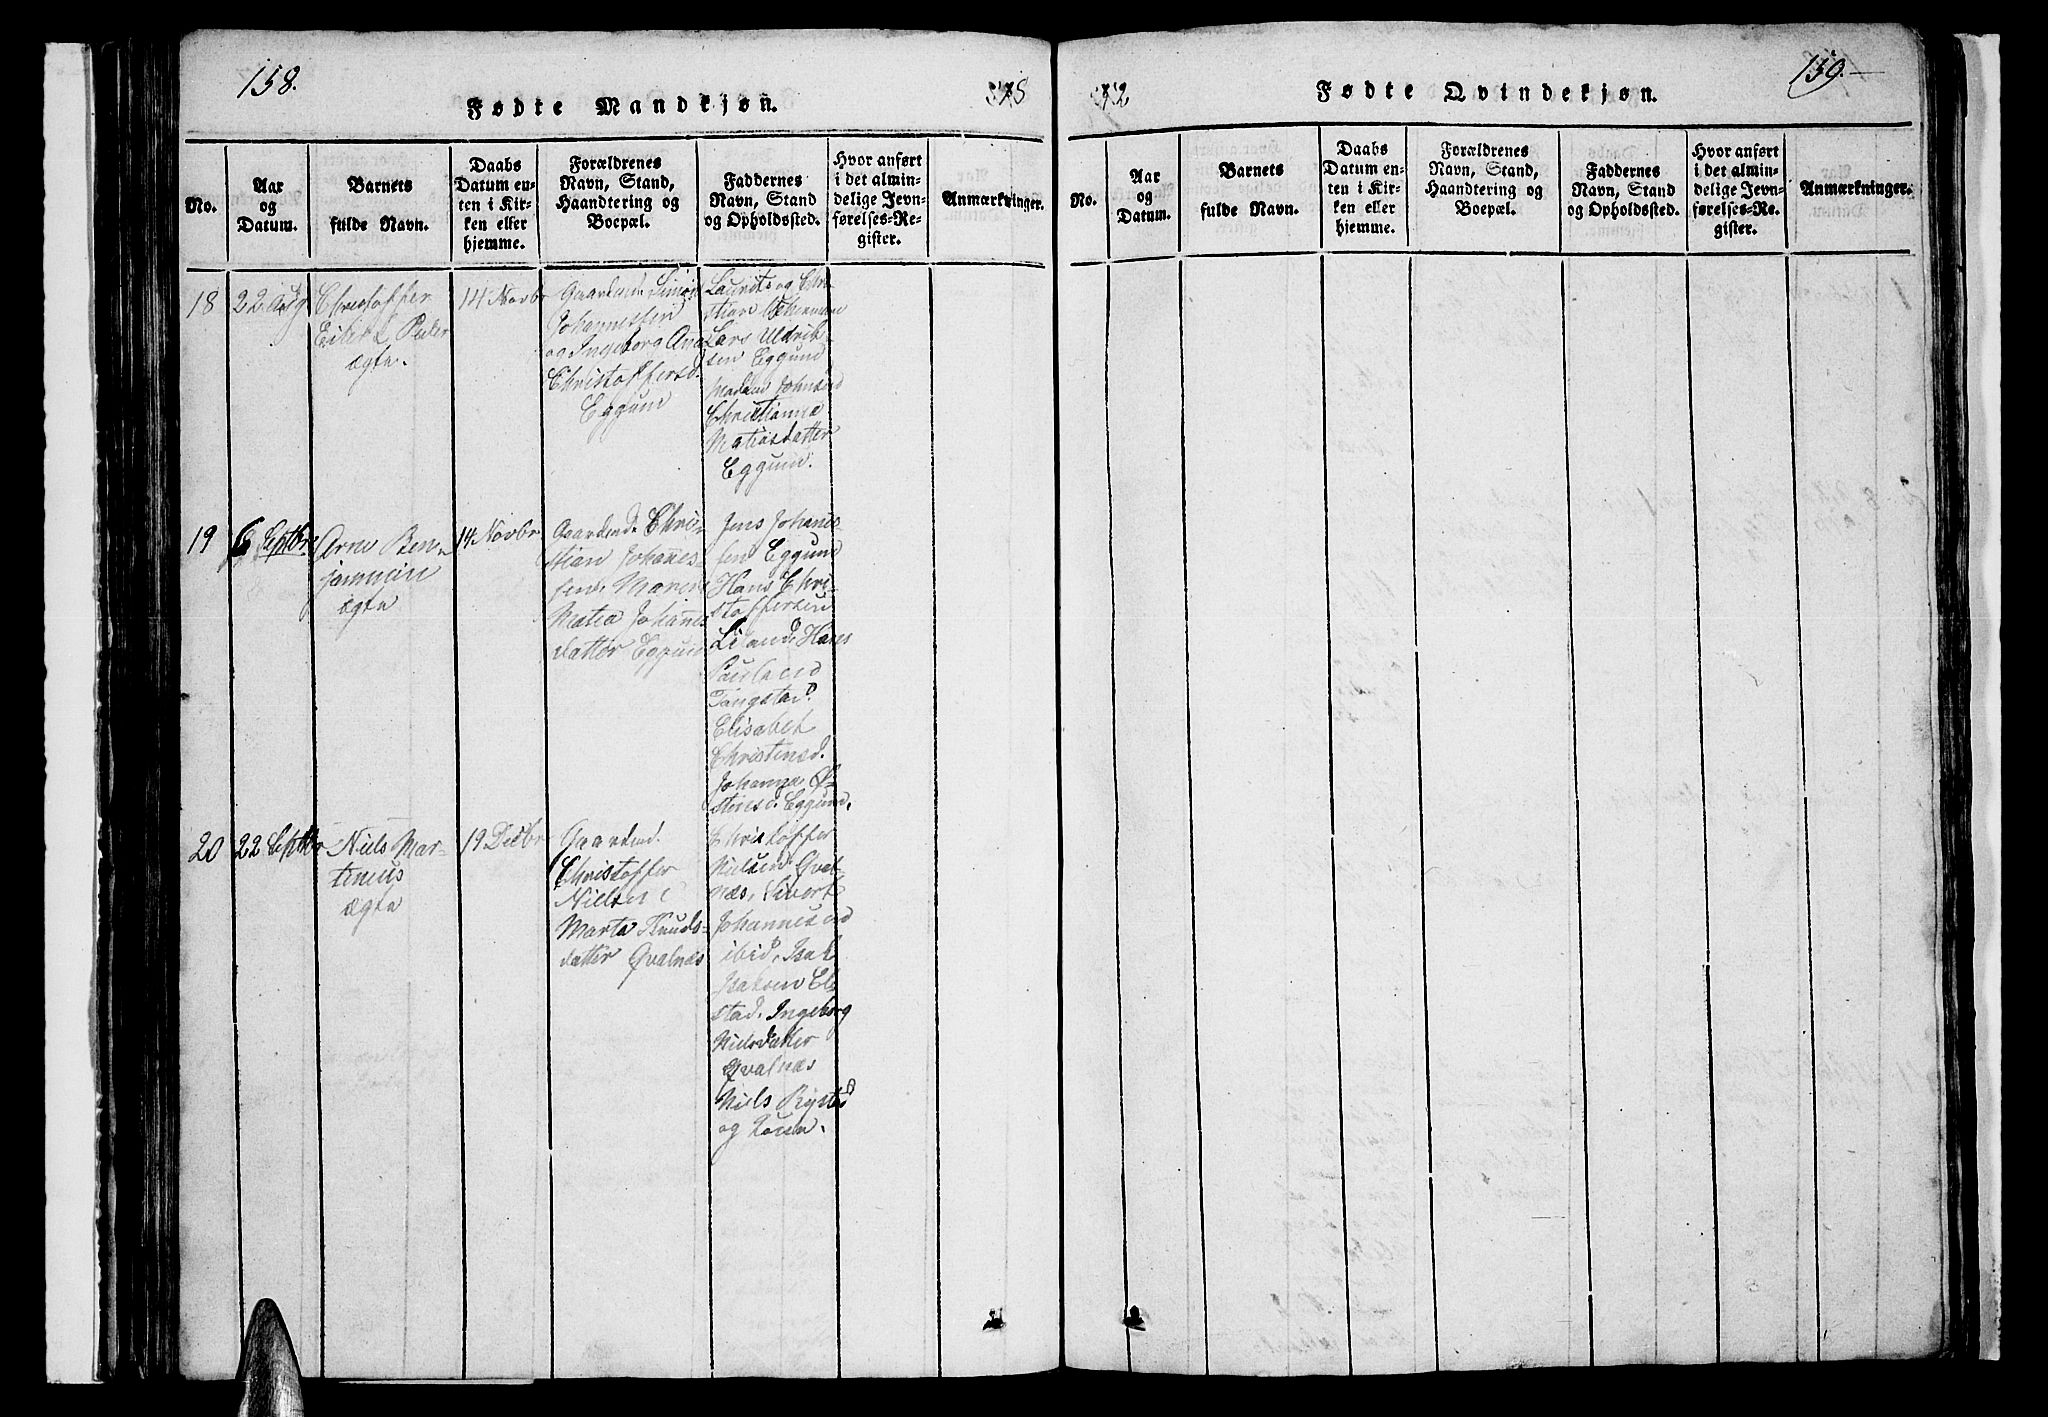 158.
Fødte Mandkjøn.
No.
Aar
og
Datum.
Barnets
fulde Navn.
Daabs
Datum en-
ten i Kir-
ken eller
hjemme.
Forældrenes
Navn, Stand,
Haandtering og
Boepæl.
Faddernes
Navn, Stand
og Opholdssted.
Hvor anført
i det almin-
delige Jevn-
førelses-Re-
gister.
Anmærkninger.
18
22 Aug
Christoffer
Peder
ægte.
14 Novbr
Gaardmd. Simon
Johannessen
og Ingeborg Ana
Christoffersd.
Eggum
Laurits og Chri-
stian
Lars Uldrik-
sen Eggum
Madam Johnsen
Christianna
Matiasdatter
Eggum.
19
6 Septbr
Arne Ben-
jamin
ægte
14 Novbr
Gaardmd. Chri-
stian Johannes-
sen, Maren
Matea Johannes
datter Eggum
Jens Johanes-
sen Eggum
Hans Chri-
stoffersen
Liland, Hans
Paulsen
Tangstad.
Elisabet
Christensd.
Johanna Ø-
stensd. Eggum.
20
22 Septbr
Niels Mar-
tinius
ægte
19 Decbr
Gaardmd.
Christoffer
Nielsen
Marta Knuds-
datter Qvalnæs
Christoffer
Nielsen Qval-
næs, Sivert
Johannesen
ibid, Isak
Isaksen El-
stad, Ingeborg
Nielsdatter
Qvalnæs
Niels Rysted
og
159.
Fødte Qvindekjøn.
No.
Aar
og
Datum.
Barnets
fulde Navn.
Daabs
Datum en-
ten i Kir-
ken eller
hjemme.
Forældrenes
Navn, Stand,
Haandtering og
Boepæl.
Faddernes
Navn, Stand
og Opholdssted.
Hvor anført
i det almin-
delige Jevn-
førelses-Re-
gister.
Anmærkninger.